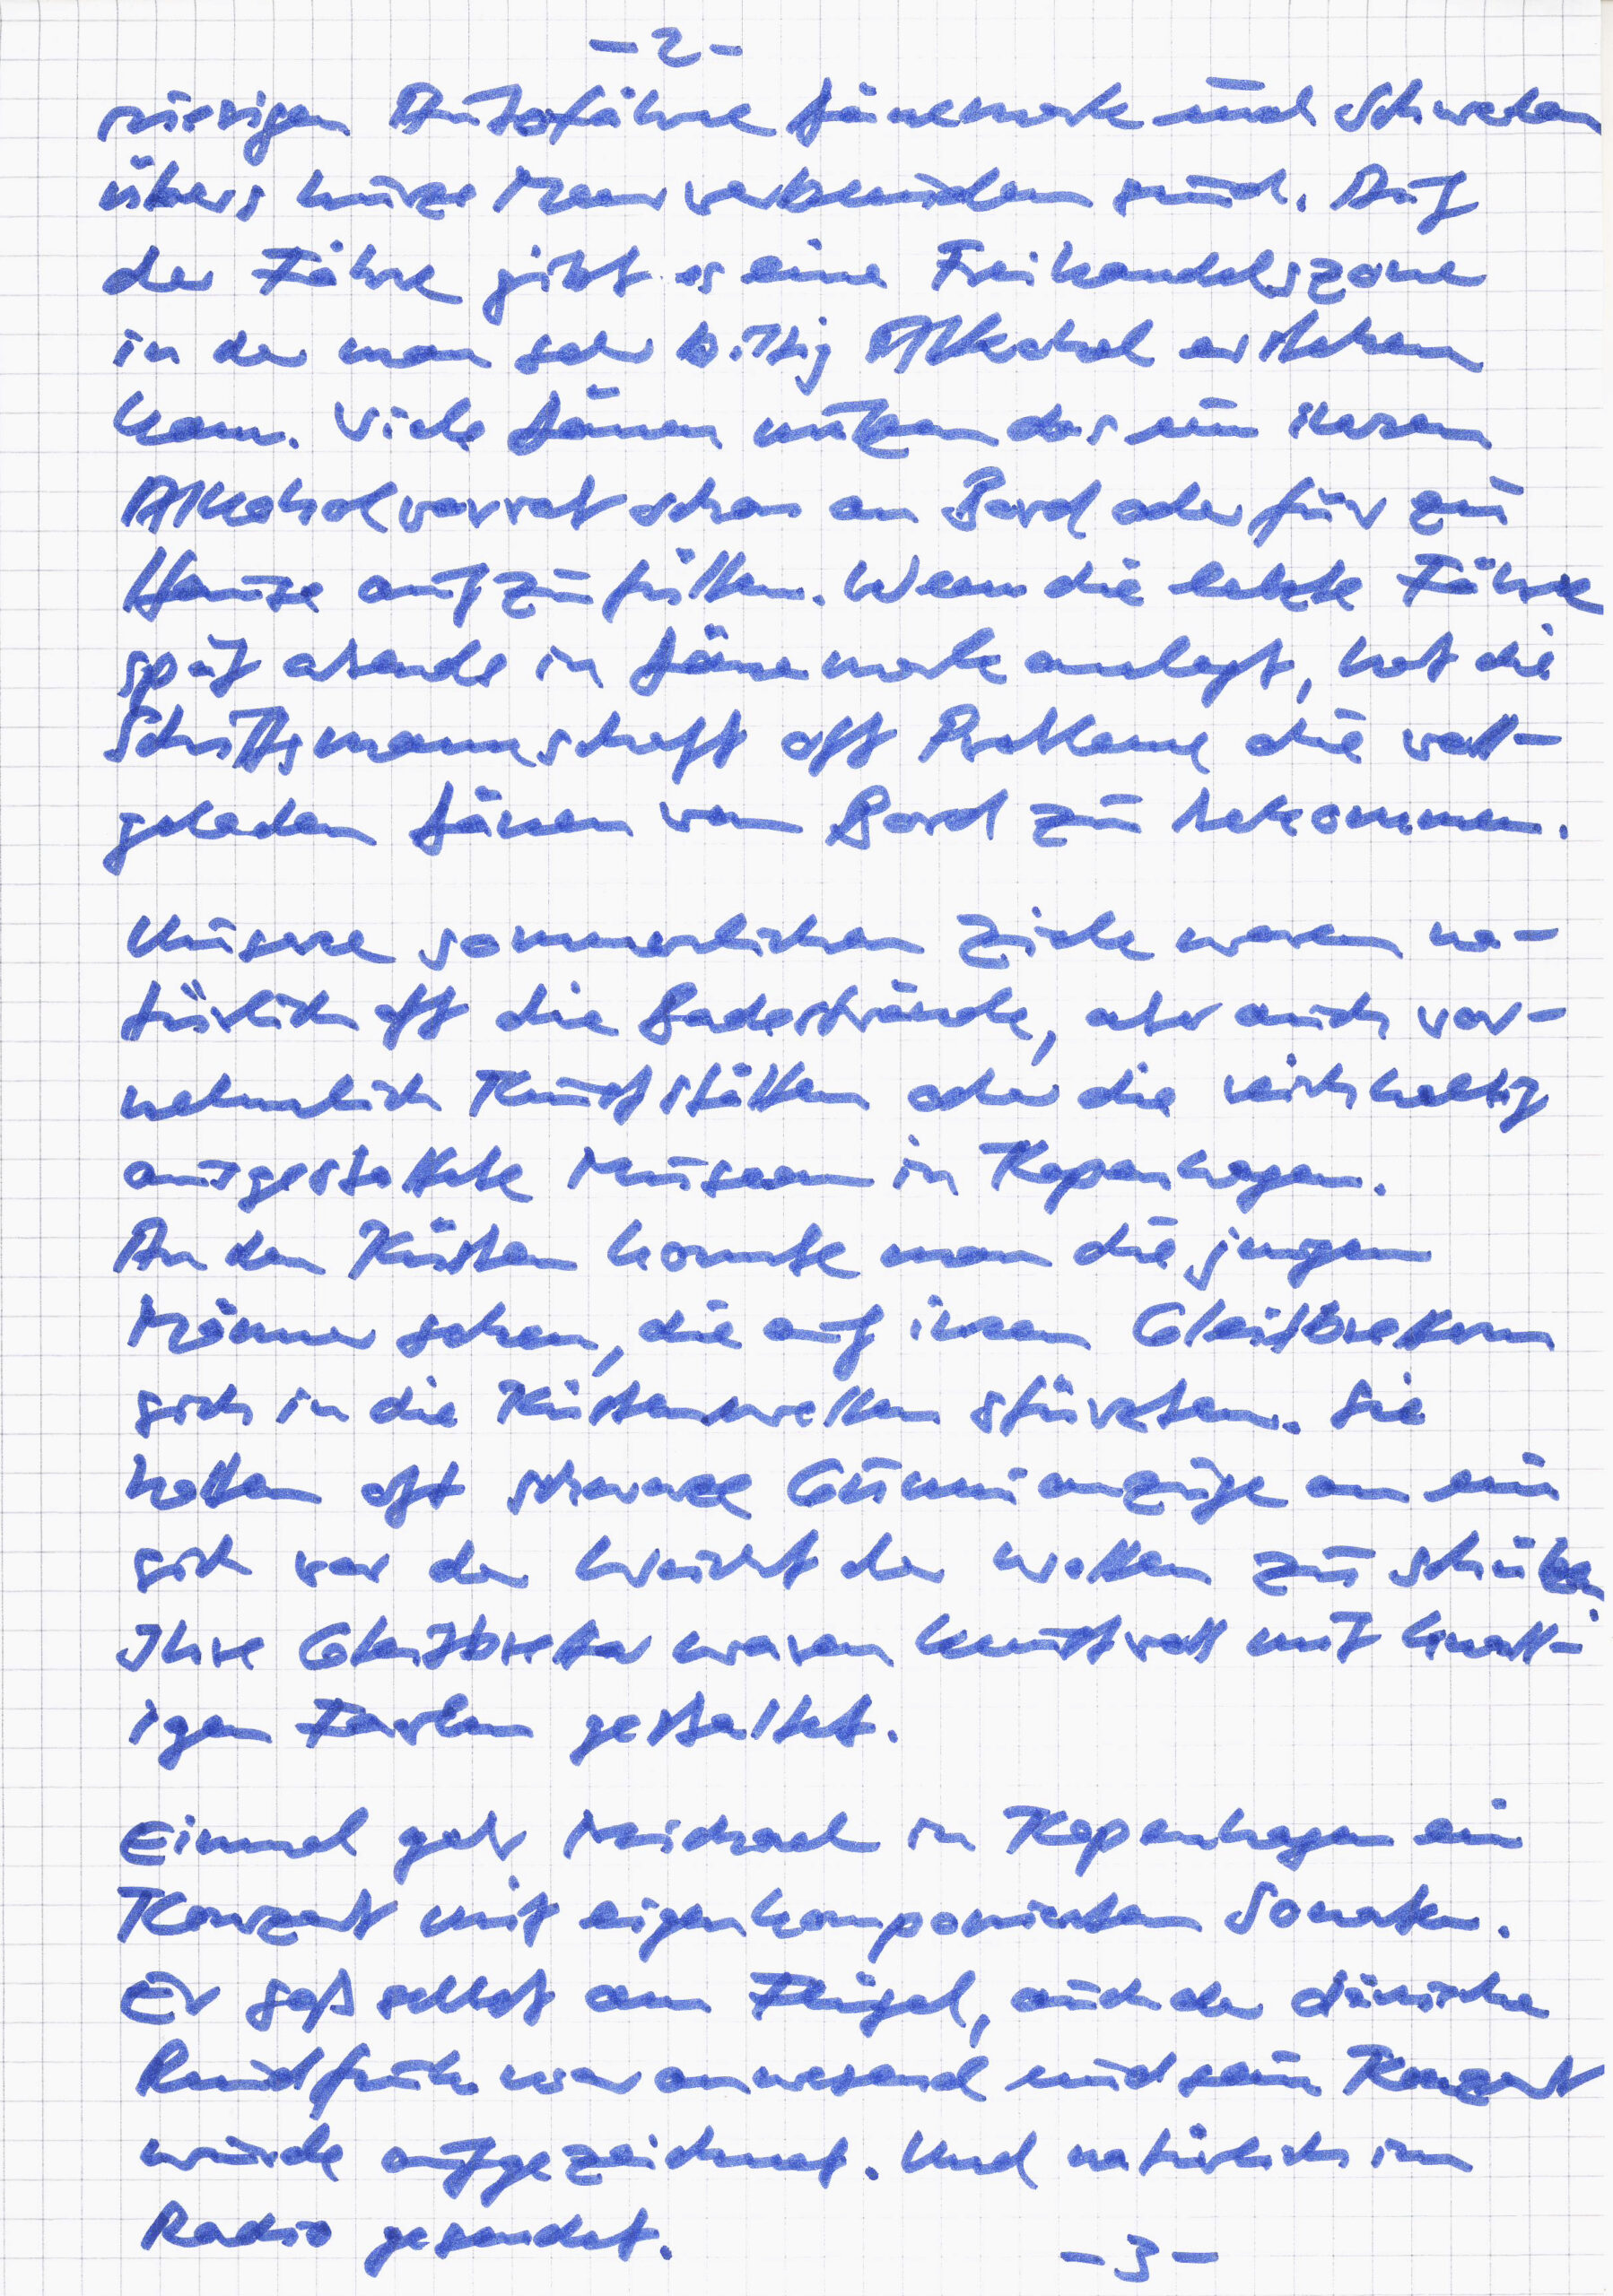 - 2 -
riesigen Autofähre Dänemark und Schweden
übers kurze Meer verbunden sind. Auf
der Fähre gibt es eine Freihandelszone
in der man sehr billig Alkohol erstehen
kann. Viele Dänen nutzen das um ihren
Alkoholvorrat schon an Bord oder für zu
Hause aufzufüllen. Wenn die letzte Fähre
spät abends in Dänemark anlegt, hat die
Schiffsmannschaft oft Probleme die voll-
geladen Dänen von Bord zu bekommen.
Unsere sommerlichen Ziele waren na-
türlich oft die Badestrände, aber auch vor-
nehmlich Kunststätten oder die reichhaltig
ausgestattete Museen in Kopenhagen.
An den Küsten konnte man die jungen
Männer sehen, die auf ihren Gleitbrettern
sich in die Küstenwellen stürzten. Sie
hatten oft schwarze Gummianzüge an um
sich vor der Wucht der Wellen zu schützen.
Ihre Gleitbretter waren kunstvoll mit knall-
igen Farben gestaltet.
Einmal gab Michael in Kopenhagen ein
Konzert mit eigenkomponierten Sonaten.
Er saß selbst am Flügel, auch der dänische
Rundfunk war anwesend und sein Konzert
wurde aufgezeichnet. Und natürlich im
Radio gesendet.
- 3 -